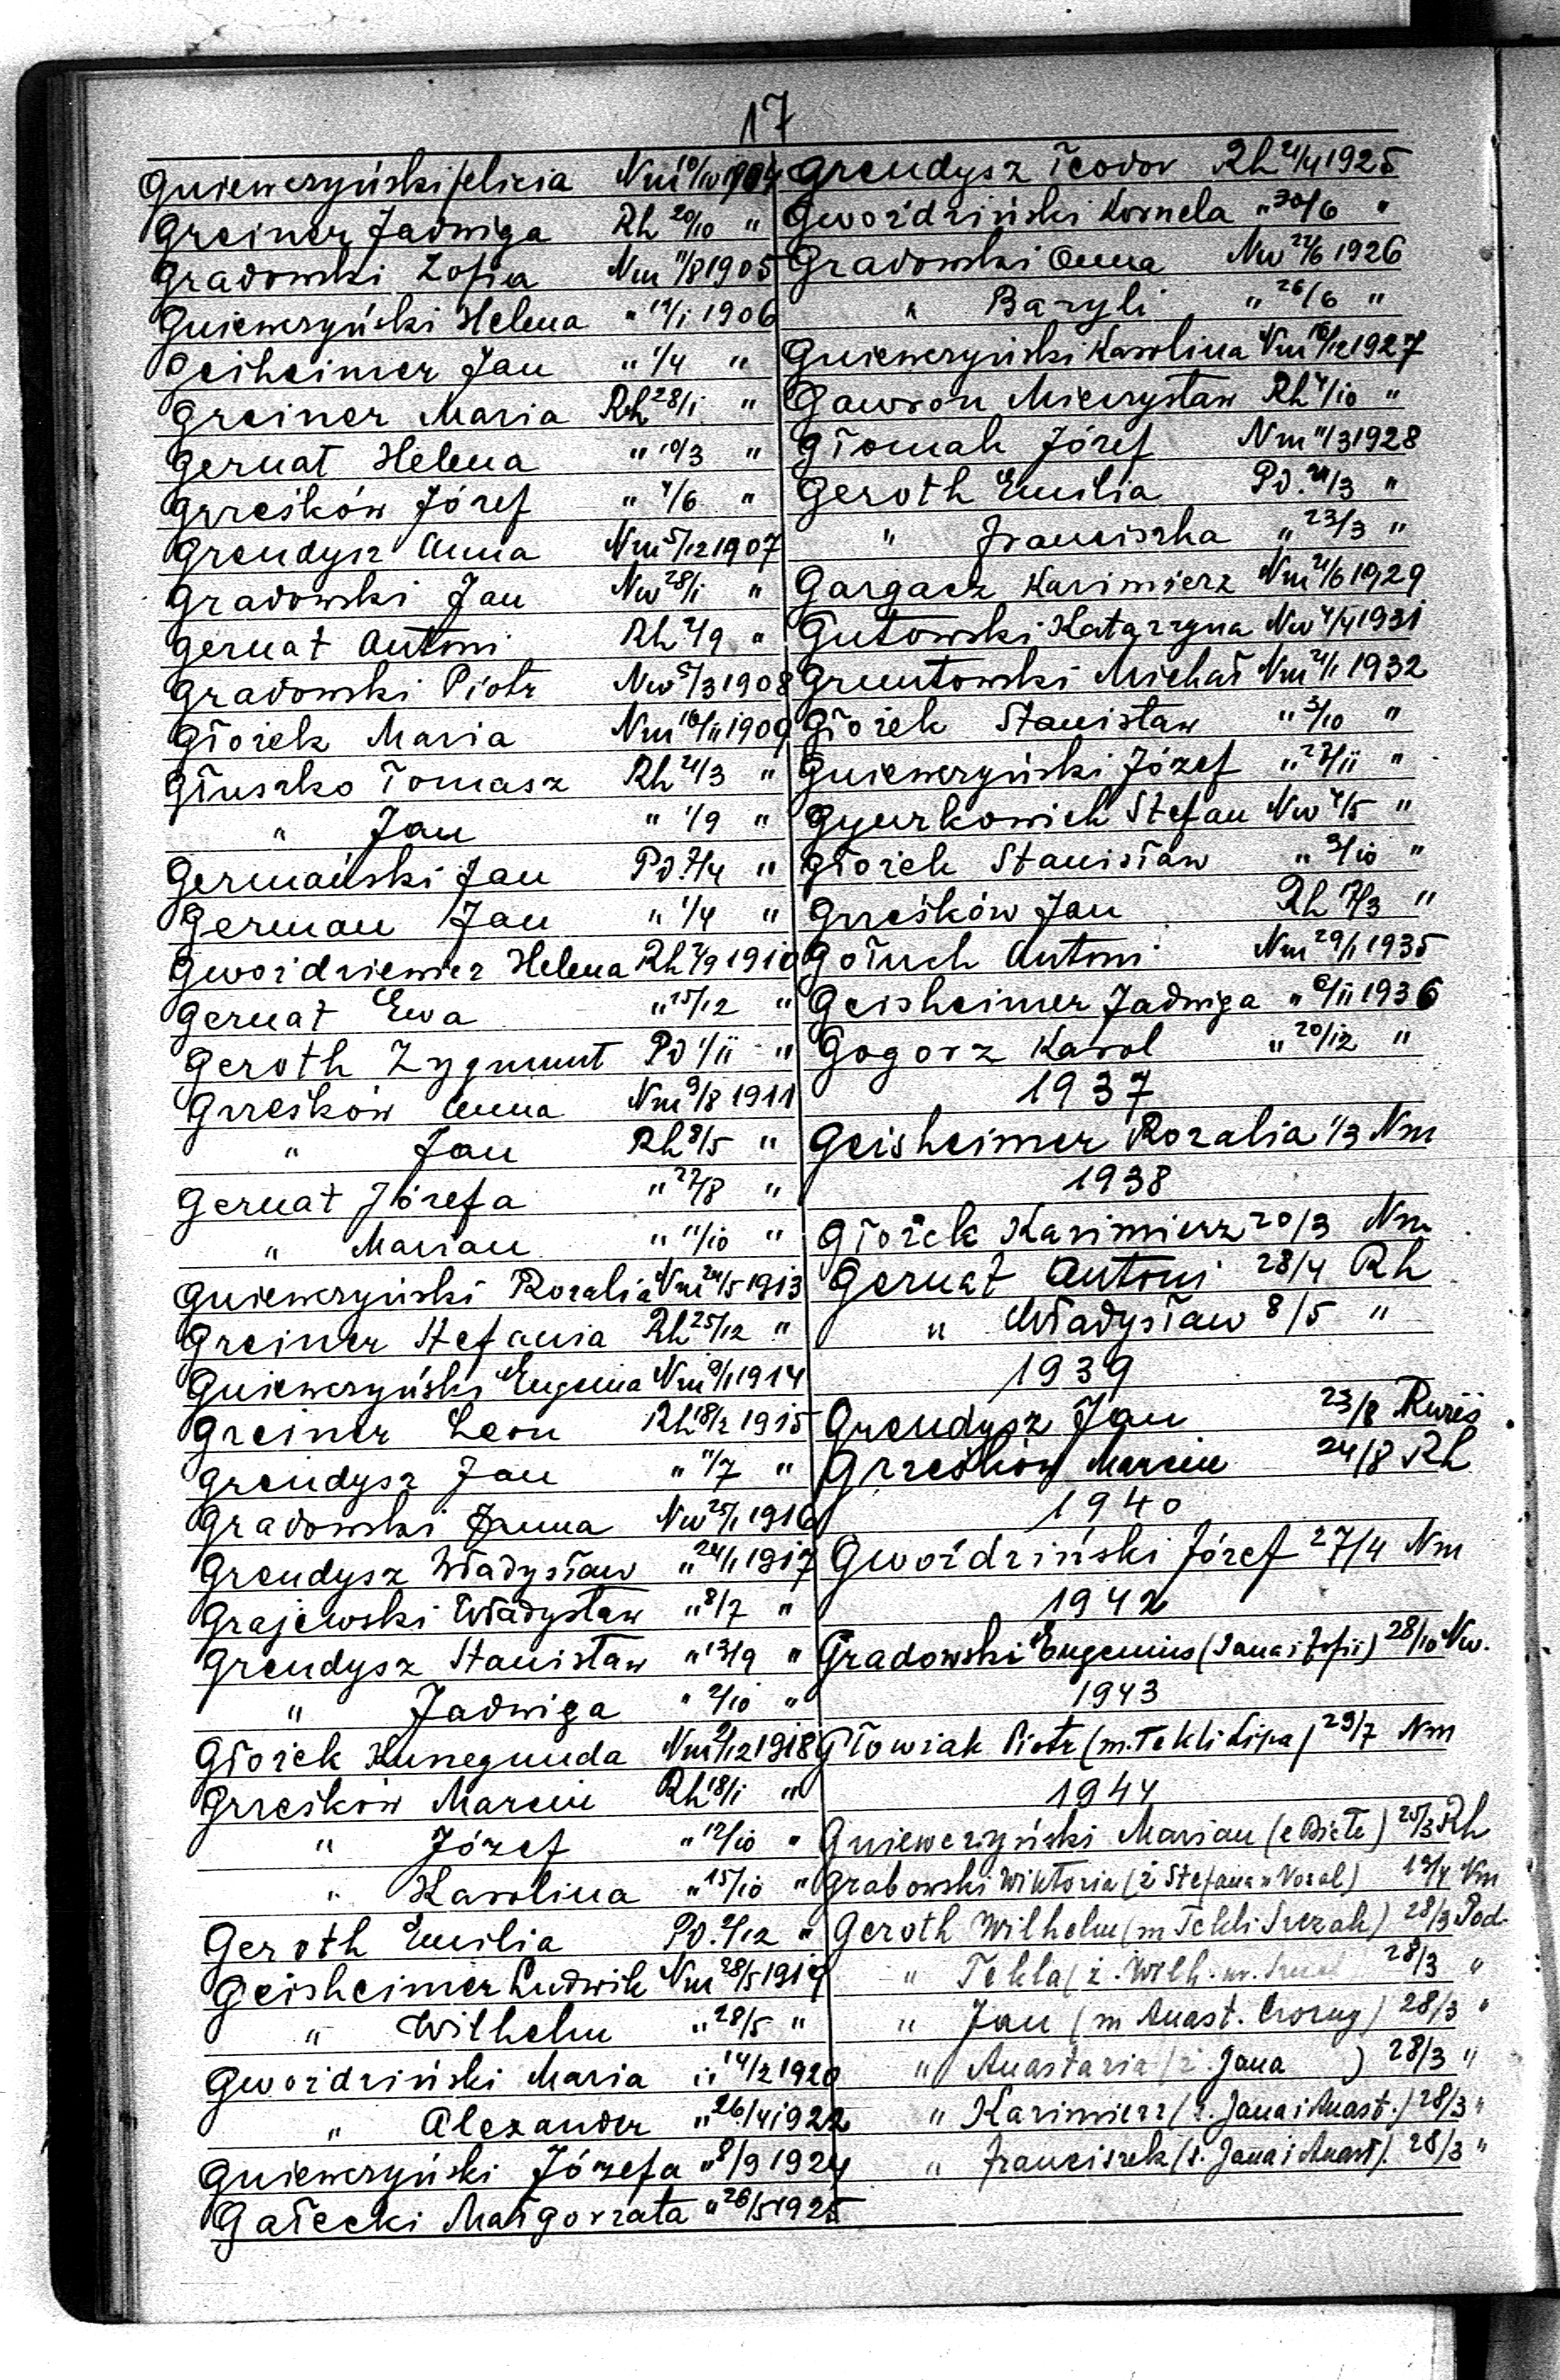 17
Gniewczyński Felicia Nm 10/10 1904
Greiner Jadwiga Rh 20/10 "
Gradowski Zofia Nm 11/8 1905
Gniewczyński Helena " 14/1 1906
Geiheimer Jan " 1/4 "
Greiner Maria Rh 28/1 "
Gernat Helena " 10/3 "
Grześków Józef " 4/6 "
Grendysz Anna Nm 5/12 1907
Gradowski Jan Nw 28/1 "
Gernat Antoni Rh 2/9 "
Gradowski Piotr Nw 5/3 1908
Głożek Maria Nm 16/11 1909
Głuszko Tomasz Rh 21/3 "
" Jan " 1/9 "
Germański Jan Pd. 7/4 "
German Jan " 1/4 "
Gwoździewicz Helena Rh 7/9 1910
Gernat Ewa " 15/12 "
Geroth Zygmunt Pd 1/11 "
Grześków Anna Nm 9/8 1911
" Jan Rh 8/5 "
Gernat Józefa " 22/8 "
" Marian " 11/10 "
Gniewczyński Rozalia Nm 24/5 1913
Greiner Stefania Rh 25/12 "
Gniewczyński Eugenia Nm 9/1 1914
Greiner Leon Rh 18/2 1915
Grendysz Jan " 11/7 "
Gradowski Anna Nw 25/1 1916
Grendysz Władysław " 24/1 1917
Grajewski Władysław " 8/7 "
Grendysz Stanisław " 13/9 "
" Jadwiga " 2/10 "
Głożek Kunegunda Nm 2/12 1918
Grześków Marcin Rh 18/1 "
" Józef " 12/10 "
" Karolina " 15/10 "
Geroth Emilia Pd. 2/12 "
Geisheimer Ludwik Nm 28/5 1919
" Wilhelm " 28/5 "
Gwoździński Maria " 14/2 1920
" Alexander " 26/4 1922
Gniewczyński Józefa " 8/9 1924
Gałecki Małgorzata " 26/5 1925
Grendysz Teodor Rh 21/4 1925
Gwoździński Kornela " 30/6 "
Gradowski Anna Nw 22/6 1926
" Bazyli " 26/6 "
Gniewczyński Karolina Nm 16/12 1927
Gawron Mieczysław Rh 4/10 "
Głomak Józef Nm 11/3 1928
Geroth Emilia Pd. 21/3 "
" Franciszka " 23/3 "
Gargacz Kazimierz Nm 21/6 1929
Gutowski Katarzyna Nw 4/4 1931
Gruntowski Michał Nm 21/1 1932
Głożek Stanisław " 3/10 "
Gniewczyński Józef " 27/11 "
Gyurkowich Stefan Nw 4/5 "
Głożek Stanisław " 3/10 "
Grześków Jan Rh 7/3 "
Gołuch Antoni Nm 29/1 1935
Geisheimer Jadwiga " 6/11 1936
Gogorz Karol " 20/12 "
1937
Geisheimer Rozalia 1/3 Nm
1938
Głożek Kazimierz 20/3 Nm
Gernat Antoni 28/4 Rh
" Władysław 8/5 "
1939
Grendysz Jan 23/8
Grześków Marcin 24/8 Rh
1940
Gwoździński Józef 27/4 Nm
1942
Gradowski Eugenius (Jana i Zofii) 28/10 Nw.
1943
Głowiak Piotr (m. Tekli Lipa) 29/7 Nm
1944
Gniewczyński Marian (e Biete) 25/3 Rh
Grabowski Wiktoria (ż Stefana ) 19/4 Nm
Geroth Wilhelm (m Tekli Szczak) 28/3 Pod.
" Tekla (ż. Wilh. 28/3 "
" Jan (m Anast. ) 28/3 "
" Anastazia (ż. Jana ) 28/3 "
" Kazimierz (s. Jana i Anast.) 28/3 "
" Franciszek (s. Jana i Anast). 28/3 "